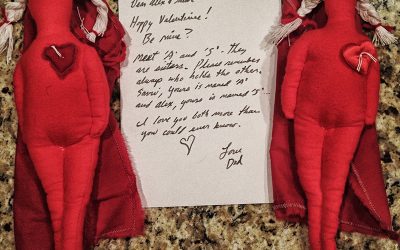 Happy Valentine!
Be mine?
Meet "A" and "S". They
are sisters. Please remember
always who holds the other.
yours is named "A"
and Alex, yours is named "S".
I love you both more than
you could ever know.
Love
Dad